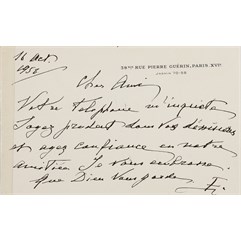 16 Oct.
1956
29BIS RUE PIERRE GUÉRIN, PARIS XVIE
Cher Ami
Votre téléphone m'inquete
Soyez prudent dans vos décisions
et ayez confiance en notre
amitier Je vous embrasse.
que Dieu vous garde